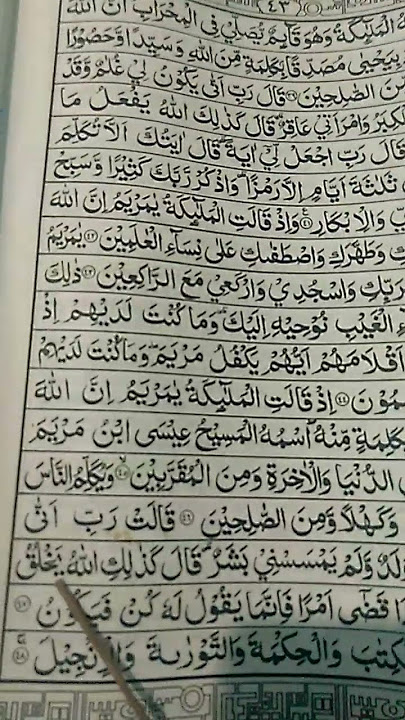 ٤٣
الْمَلٰٓئِكَةُ وَهُوَ قَآئِمٌ يُّصَلِّيْ فِي الْمِحْرَابِ اَنَّ اللّٰهَ
بِيَحْيٰى مُصَدِّقًاۢ بِكَلِمَةٍ مِّنَ اللّٰهِ وَسَيِّدًا وَّحَصُوْرًا
مِّنَ الصّٰلِحِيْنَ ۝٣٩ قَالَ رَبِّ اَنّٰى يَكُوْنُ لِيْ غُلٰمٌ وَّقَدْ
الْكِبَرُ وَامْرَاَتِيْ عَاقِرٌ ؕ قَالَ كَذٰلِكَ اللّٰهُ يَفْعَلُ مَا
قَالَ رَبِّ اجْعَلْ لِّيْٓ اٰيَةً ؕ قَالَ اٰيَتُكَ اَلَّا تُكَلِّمَ
ثَلٰثَةَ اَيَّامٍ اِلَّا رَمْزًا ؕ وَاذْكُرْ رَّبَّكَ كَثِيْرًا وَّسَبِّحْ
وَالْاِبْكَارِ ۝٤١ وَاِذْ قَالَتِ الْمَلٰٓئِكَةُ يٰمَرْيَمُ اِنَّ اللّٰهَ
وَطَهَّرَكِ وَاصْطَفٰىكِ عَلٰى نِسَآءِ الْعٰلَمِيْنَ ۝٤٢ يٰمَرْيَمُ
لِرَبِّكِ وَاسْجُدِيْ وَارْكَعِيْ مَعَ الرّٰكِعِيْنَ ۝٤٣ ذٰلِكَ
الْغَيْبِ نُوْحِيْهِ اِلَيْكَ ؕ وَمَا كُنْتَ لَدَيْهِمْ اِذْ
اَقْلَامَهُمْ اَيُّهُمْ يَكْفُلُ مَرْيَمَ ۪ وَمَا كُنْتَ لَدَيْهِمْ
۝٤٤ اِذْ قَالَتِ الْمَلٰٓئِكَةُ يٰمَرْيَمُ اِنَّ اللّٰهَ
بِكَلِمَةٍ مِّنْهُ ۖ اسْمُهُ الْمَسِيْحُ عِيْسَى ابْنُ مَرْيَمَ
الدُّنْيَا وَالْاٰخِرَةِ وَمِنَ الْمُقَرَّبِيْنَ ۝٤٥ وَيُكَلِّمُ النَّاسَ
وَكَهْلًا وَّمِنَ الصّٰلِحِيْنَ ۝٤٦ قَالَتْ رَبِّ اَنّٰى
وَلَدٌ وَّلَمْ يَمْسَسْنِيْ بَشَرٌ ؕ قَالَ كَذٰلِكِ اللّٰهُ يَخْلُقُ
قَضٰٓى اَمْرًا فَاِنَّمَا يَقُوْلُ لَهٗ كُنْ فَيَكُوْنُ ۝٤٧
الْكِتٰبَ وَالْحِكْمَةَ وَالتَّوْرٰىةَ وَالْاِنْجِيْلَ ۝٤٨